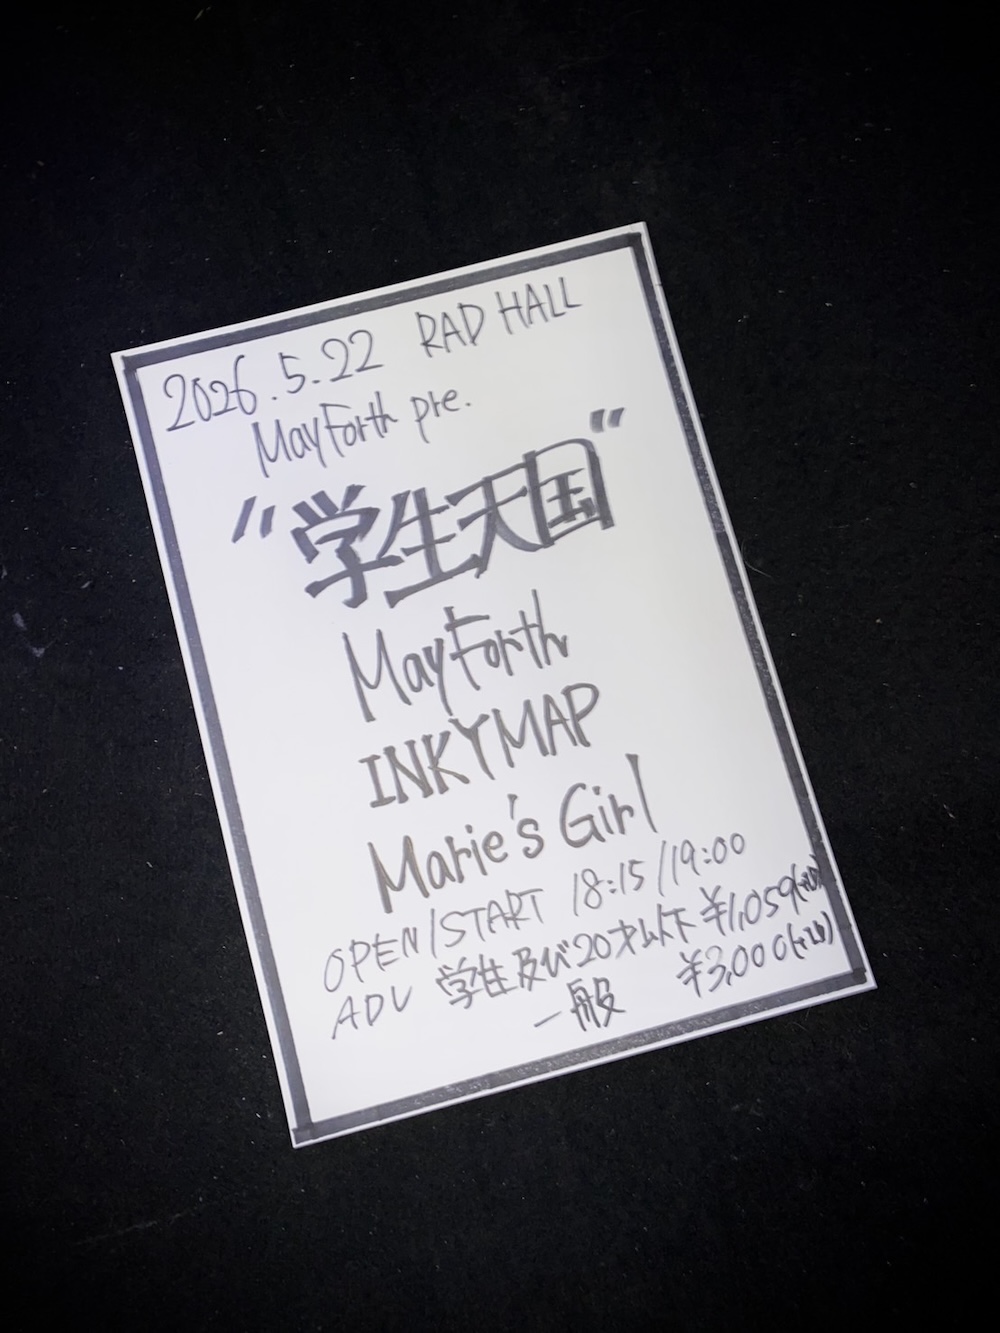 2026.5.22 RAD HALL
MayForth pre.
"学生天国"
MayForth
INKYMAP
Marie's Girl
OPEN/START 18:15/19:00
ADV 学生及び20才以下 ¥1,059(+2D)
一般 ¥3,000(+2D)